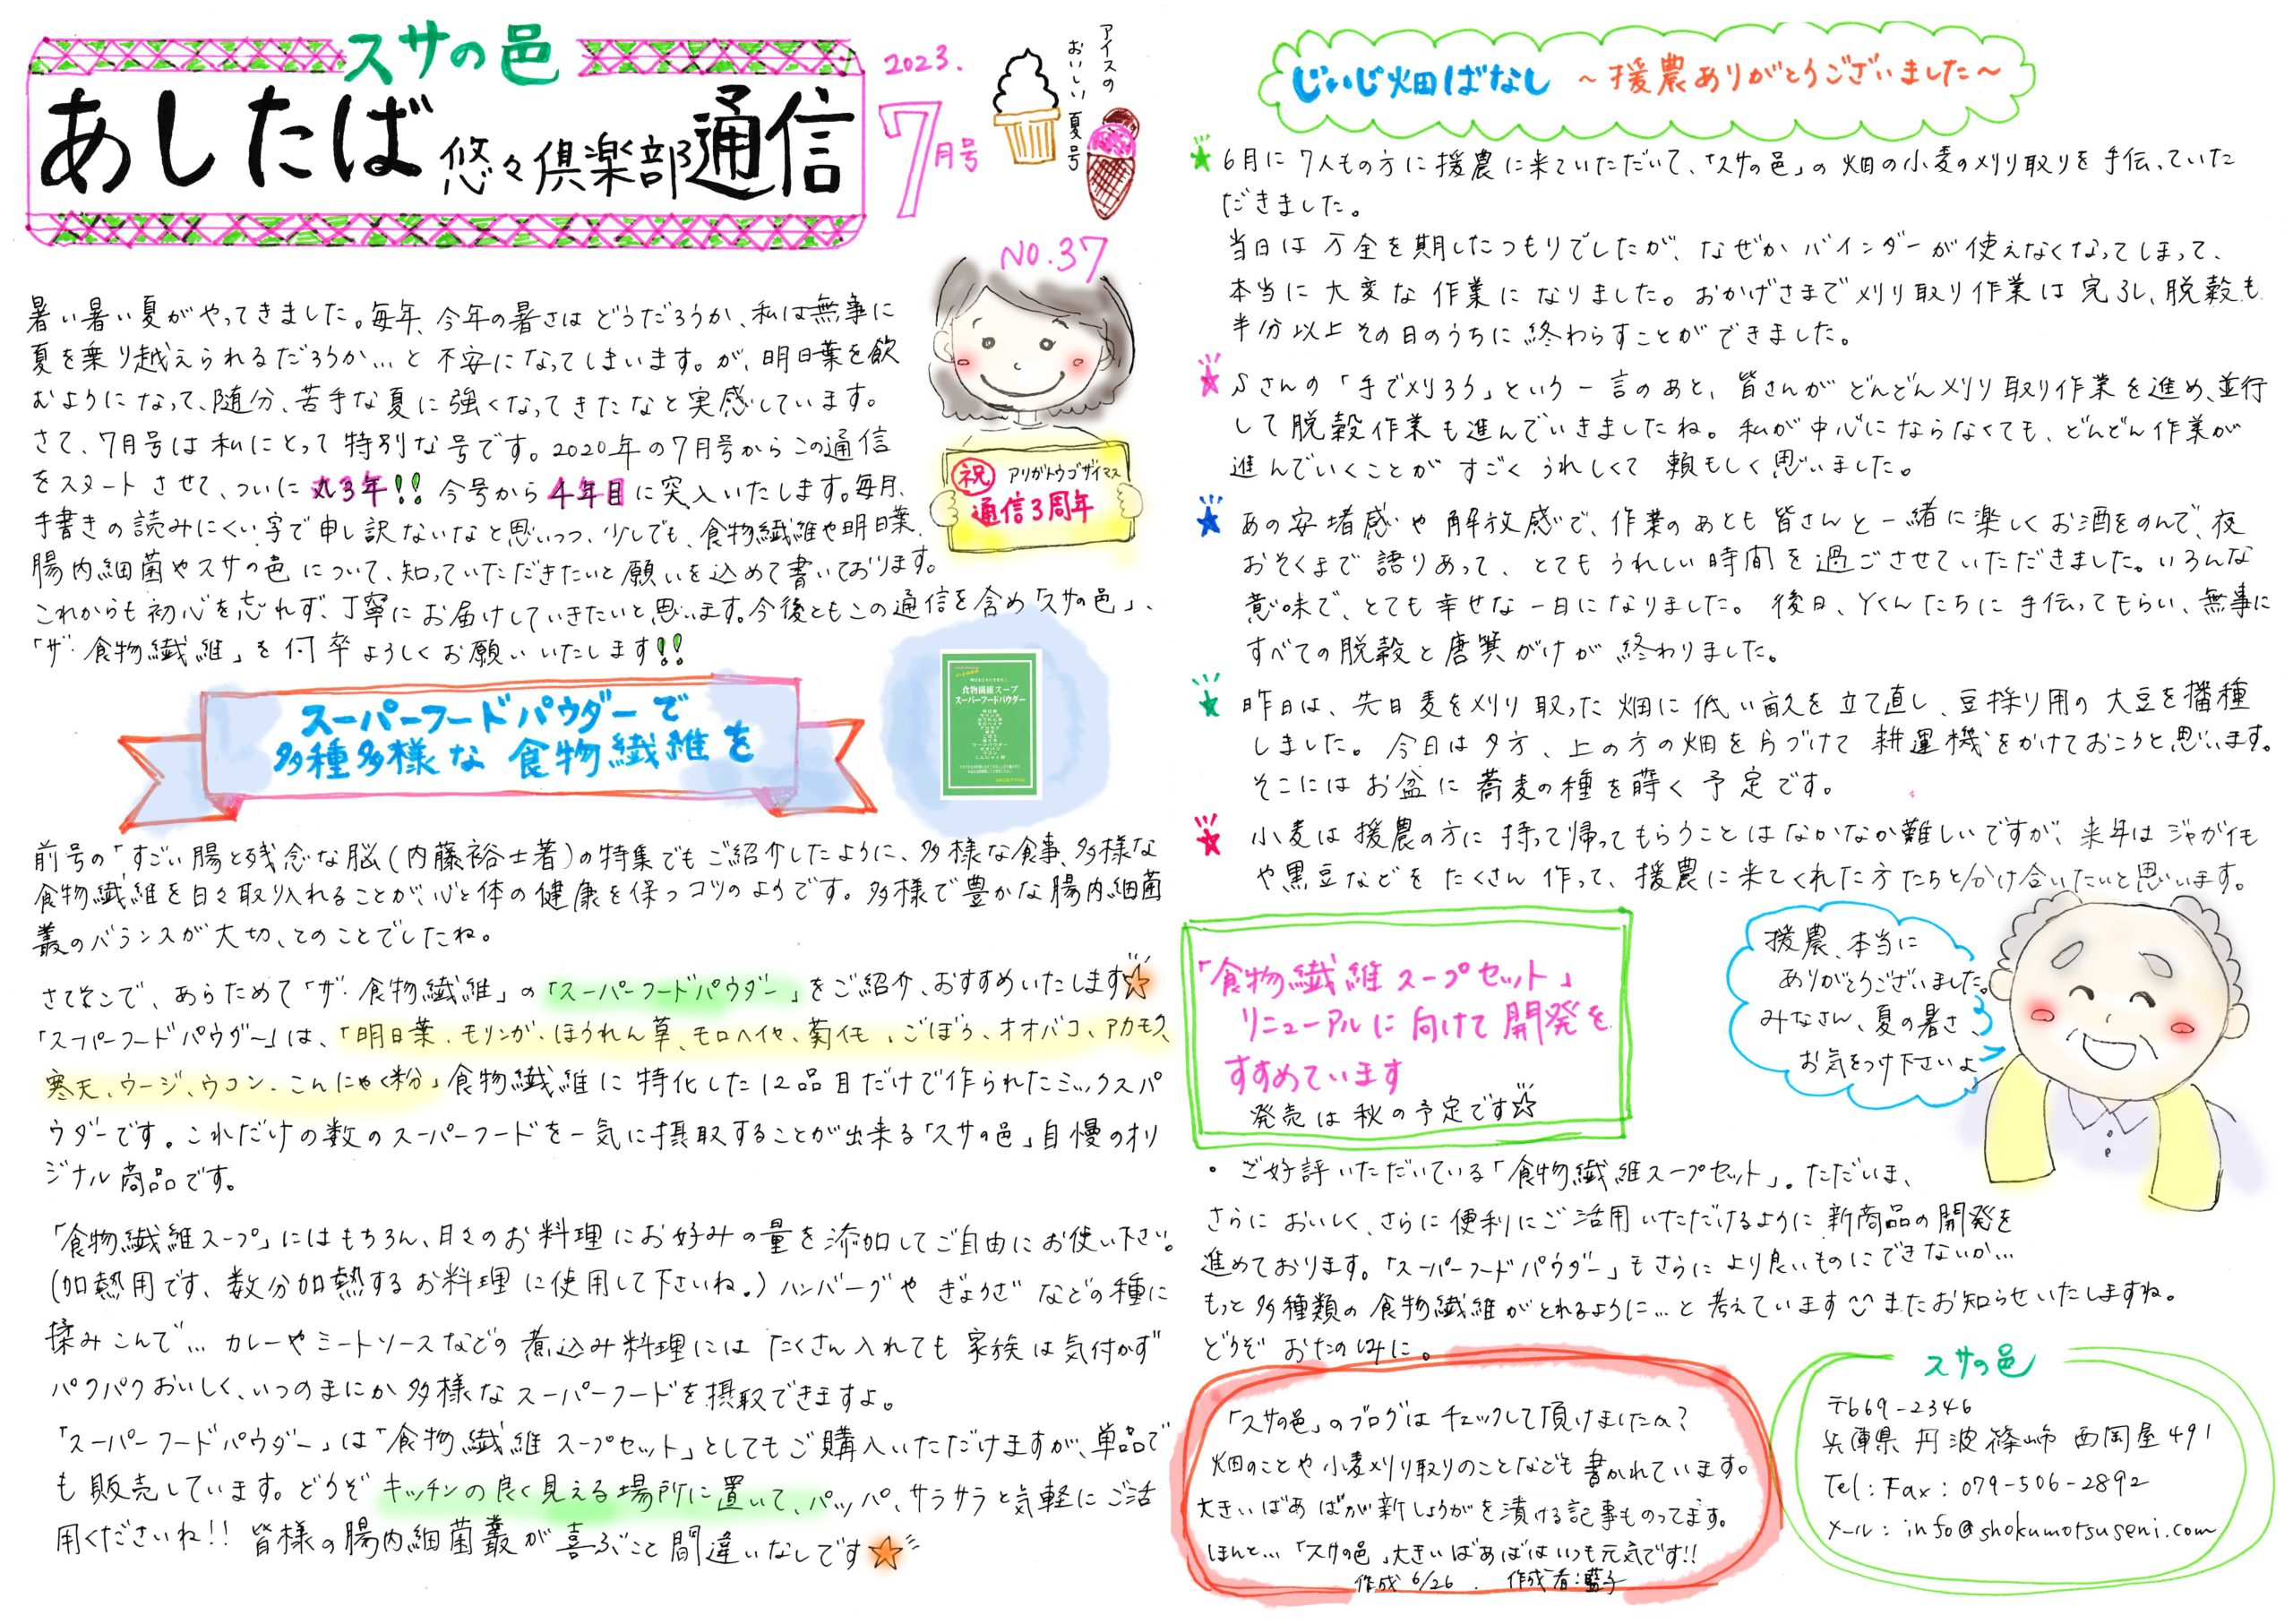 スサの邑
あしたば 悠々倶楽部 通信
2023.
7月号
アイスの
おいしい夏号
NO.37
暑い暑い夏がやってきました。毎年、今年の暑さはどうだろうか、私は無事に
夏を乗り越えられるだろうか…と不安になってしまいます。が、明日葉を飲
むようになって、随分、苦手な夏に強くなってきたなと実感しています。
さて、7月号は私にとって特別な号です。2020年の7月号からこの通信
をスタートさせて、ついに丸3年!! 今号から4年目に突入いたします。毎月、
手書きの読みにくい字で申し訳ないなと思いつつ、少しでも、食物繊維や明日葉、
腸内細菌やスサの邑について、知っていただきたいと願いを込めて書いております。
これからも初心を忘れず、丁寧にお届けしていきたいと思います。今後ともこの通信を含め「スサの邑」、
「ザ・食物繊維」を何卒よろしくお願いいたします!!
祝 アリガトウゴザイマス
通信3周年
スーパーフードパウダーで
多種多様な食物繊維を
食物繊維スープ
スーパーフードパウダー
前号の「すごい腸と残念な脳(内藤裕士著)の特集でもご紹介したように、多様な食事、多様な
食物繊維を日々取り入れることが、心と体の健康を保つコツのようです。多様で豊かな腸内細菌
叢のバランスが大切、とのことでしたね。
さてそこで、あらためて「ザ・食物繊維」の「スーパーフードパウダー」をご紹介、おすすめいたします☆
「スーパーフードパウダー」は、「明日葉、モリンガ、ほうれん草、モロヘイヤ、菊イモ、ごぼう、オオバコ、アカモク、
寒天、ウージ、ウコン、こんにゃく粉」食物繊維に特化した12品目だけで作られたミックスパ
ウダーです。これだけの数のスーパーフードを一気に摂取することが出来る「スサの邑」自慢のオリ
ジナル商品です。
「食物繊維スープ」にはもちろん、日々のお料理にお好みの量を添加してご自由にお使い下さい。
(加熱用です、数分加熱するお料理に使用して下さいね。)ハンバーグやぎょうざなどの種に
揉みこんで…カレーやミートソースなどの煮込み料理にはたくさん入れても家族は気付かず
パクパクおいしく、いつのまにか多様なスーパーフードを摂取できますよ。
「スーパーフードパウダー」は「食物繊維スープセット」としてもご購入いただけますが、単品で
も販売しています。どうぞキッチンの良く見える場所に置いて、パッパ、サラサラと気軽にご活
用くださいね!! 皆様の腸内細菌叢が喜ぶこと間違いなしです☆
じいじ畑ばなし ～援農ありがとうございました～
★6月に7人もの方に援農に来ていただいて、「スサの邑」の畑の小麦の刈り取りを手伝っていた
だきました。
当日は万全を期したつもりでしたが、なぜかバインダーが使えなくなってしまって、
本当に大変な作業になりました。おかげさまで刈り取り作業は完了し、脱穀も
半分以上その日のうちに終わらすことができました。
★Sさんの「手で刈ろう」という一言のあと、皆さんがどんどん刈り取り作業を進め、並行
して脱穀作業も進んでいきましたね。私が中心にならなくても、どんどん作業が
進んでいくことがすごくうれしくて頼もしく思いました。
★あの安堵感や解放感で、作業のあとも皆さんと一緒に楽しくお酒をのんで、夜
おそくまで語りあって、とてもうれしい時間を過ごさせていただきました。いろんな
意味で、とても幸せな一日になりました。後日、Yくんたちに手伝ってもらい、無事に
すべての脱穀と唐箕がけが終わりました。
★昨日は、先日麦を刈り取った畑に低い畝を立て直し、豆採り用の大豆を播種
しました。今日は夕方、上の方の畑を片づけて耕運機をかけておこうと思います。
そこにはお盆に蕎麦の種を蒔く予定です。
★小麦は援農の方に持って帰ってもらうことはなかなか難しいですが、来年はジャガイモ
や黒豆などをたくさん作って、援農に来てくれた方たちと分け合いたいと思います。
「食物繊維スープセット」
リニューアルに向けて開発を
すすめています
発売は秋の予定です☆
援農、本当に
ありがとうございました。
みなさん、夏の暑さ、
お気をつけ下さいよ
・ご好評いただいている「食物繊維スープセット」。ただいま、
さらにおいしく、さらに便利にご活用いただけるように新商品の開発を
進めております。「スーパーフードパウダー」もさらにより良いものにできないか…
もっと多種類の食物繊維がとれるように…と考えています またお知らせいたしますね。
どうぞおたのしみに。
「スサの邑」のブログはチェックして頂けましたか?
畑のことや小麦刈り取りのことなども書かれています。
大きいばあばが新しょうがを漬ける記事ものってます。
ほんと…「スサの邑」大きいばあばはいつも元気です!!
作成 6/26. 作成者:藍子
スサの邑
〒669-2346
兵庫県丹波篠山市西岡屋491
Tel:Fax:079-506-2892
メール:info@shokumotsuseni.com